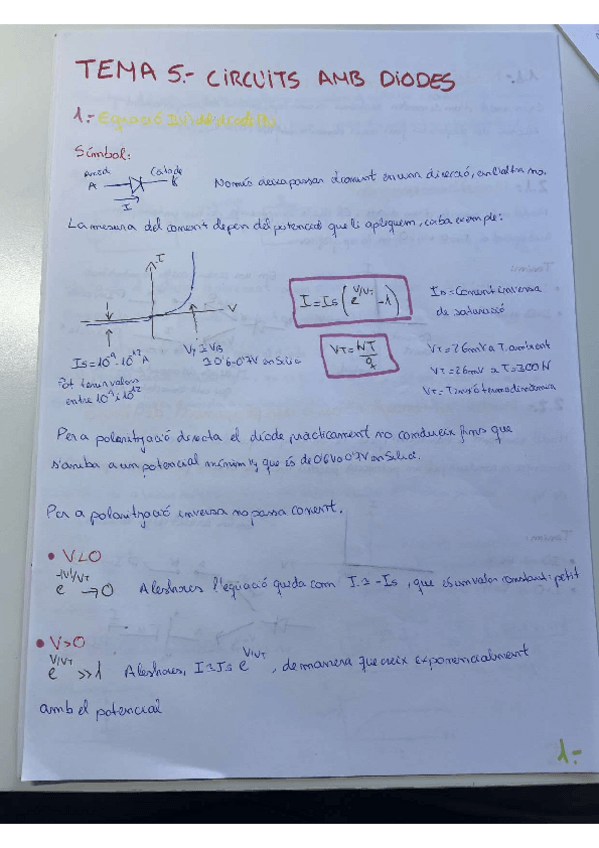 TEMA 5.- CIRCUITS AMB DIODES
1.- Equació I(V) del díode
Símbol:
Ànode Càtode
A K
I
Només deixa passar el corrent en una direcció, en l'altra no.
La mesura del corrent depen del potencial que li apliquem, corba exemple:
I
V
Vγ ≅ VB
≅ 0'6-0'7V en Silici
Is = 10⁻⁹ - 10⁻¹² A
Pot tenir valors
entre 10⁻⁹ i 10⁻¹²
I = Is (e^(V/VT) - 1)
VT = KT/q
Is = Corrent inversa
de saturació
VT = 26mV a T. ambient
VT = 26mV a T = 300K
VT = Tensió termodinàmica
Per a polarització directa el díode pràcticament no condueix fins que
s'arriba a un potencial mínim Vγ que és de 0'6V o 0'7V en Silici.
Per a polarització inversa no passa corrent.
• V<0
e^(-|V|/VT) → 0 Aleshores l'equació queda com I ≅ -Is, que és un valor constant i petit
• V>0
e^(V/VT) >> 1 Aleshores, I ≅ Is e^(V/VT), de manera que creix exponencialment
amb el potencial
1.-